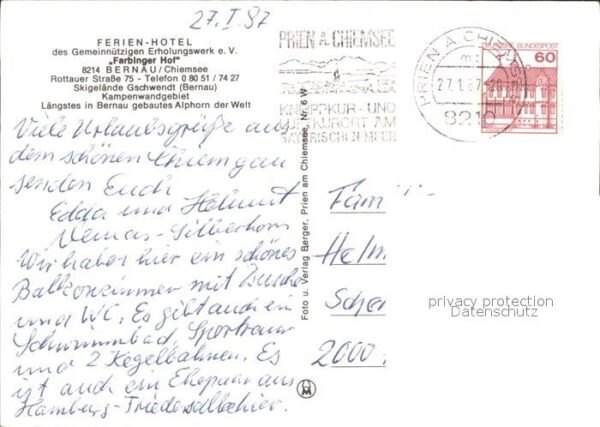 27.I 87
FERIEN-HOTEL
des Gemeinnützigen Erholungswerk e. V.
„Farbinger Hof"
8214 BERNAU/Chiemsee
Rottauer Straße 75 - Telefon 0 80 51 / 74 27
Skigelände Gschwendt (Bernau)
Kampenwandgebiet
Längstes in Bernau gebautes Alphorn der Welt
Viele Urlaubsgrüße aus
dem schönen Chiemgau
senden Euch
Edda und Helmut
Wir haben hier ein schönes
Balkonzimmer mit Dusche
und WC. Es gibt auch ein
Schwimmbad, Sportraum
und 2 Kegelbahnen. Es
ist auch ein Ehepaar aus
Hamburg- hier.
Foto u. Verlag Berger, Prien am Chiemsee, Nr. 6 W
PRIEN A. CHIEMSEE
KNEIPPKUR- UND
LUFTKURORT AM
BAYERISCHEN MEER
PRIEN A CHIEMSEE
27.1.87
8210
DEUTSCHE BUNDESPOST
60
Fam
Helm
Scha
2000
privacy protection
Datenschutz